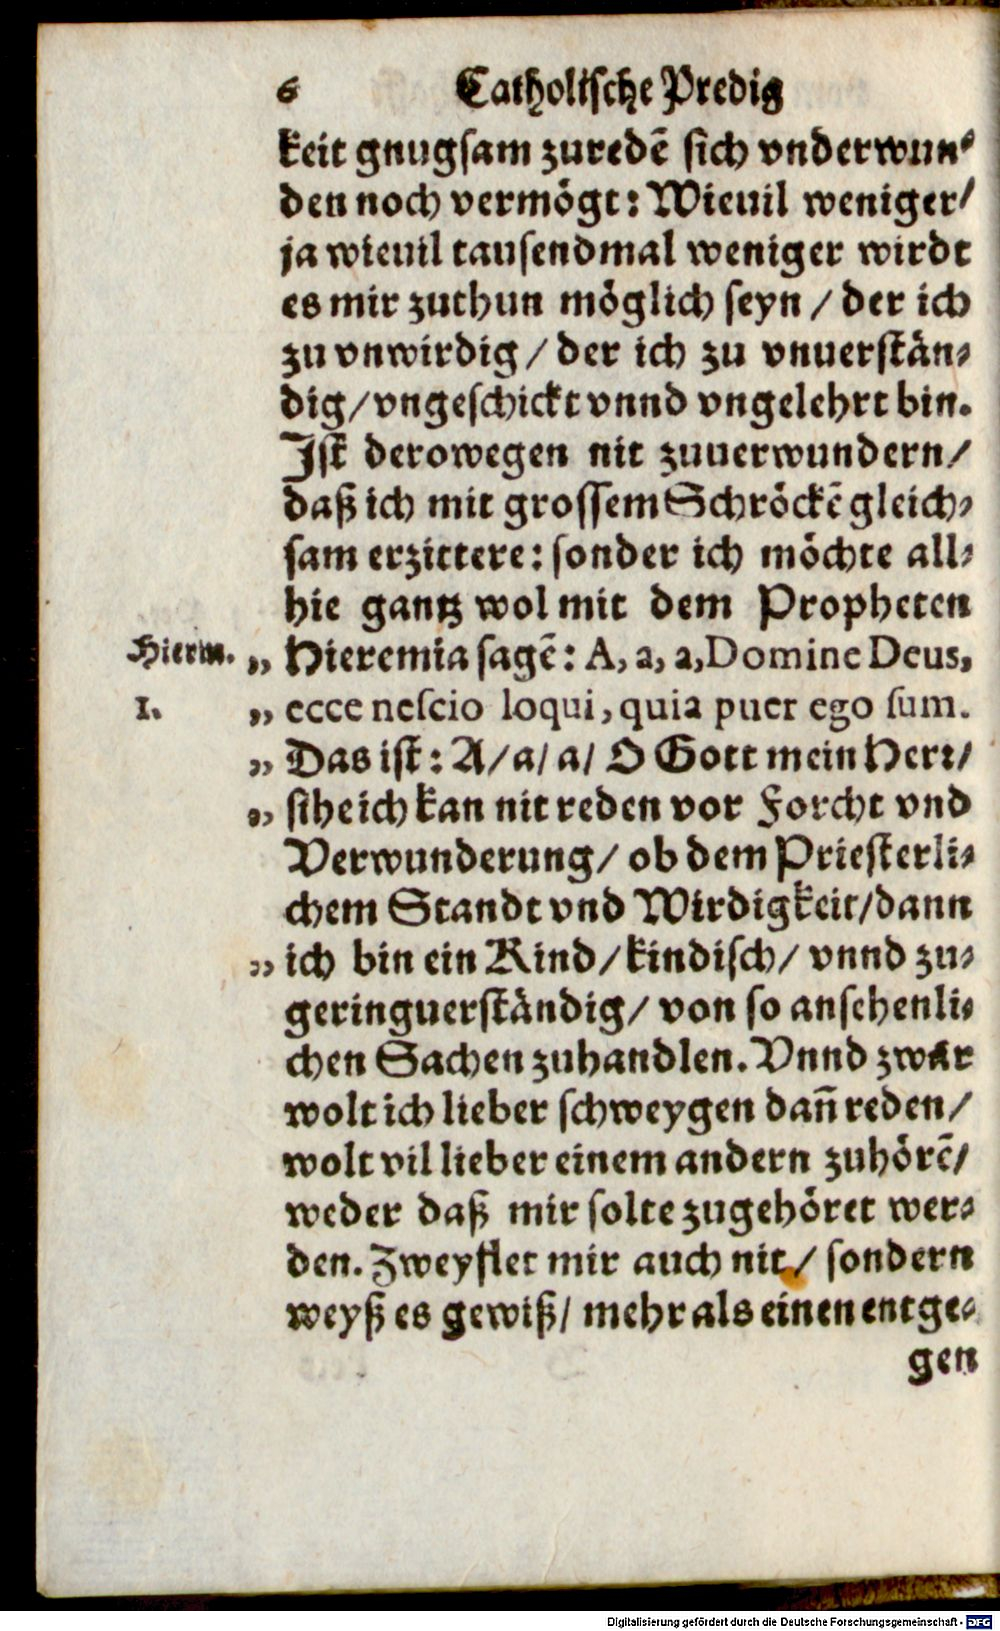 6 Catholische Predig
keit gnugsam zuredẽ sich vnderwun-
den noch vermögt: Wieuil weniger/
ja wieuil tausendmal weniger wirdt
es mir zuthun möglich seyn / der ich
zu vnwirdig / der ich zu vnuerstän-
dig/ vngeschickt vnnd vngelehrt bin.
Ist derowegen nit zuuerwundern/
daß ich mit grossem Schröckẽ gleich-
sam erzittere: sonder ich möchte all-
hie gantz wol mit dem Propheten
Hierm. „ Hieremia sagẽ: A, a, a, Domine Deus,
1. „ ecce nescio loqui, quia puer ego sum.
„ Das ist: A/ a/ a/ O Gott mein Herr/
„ sihe ich kan nit reden vor Forcht vnd
Verwunderung/ ob dem Priesterli-
chem Standt vnd Wirdigkeit/dann
„ ich bin ein Kind/kindisch/ vnnd zu-
geringuerständig/ von so ansehenli-
chen Sachen zuhandlen. Vnnd zwar
wolt ich lieber schweygen dañ reden/
wolt vil lieber einem andern zuhörẽ/
weder daß mir solte zugehöret wer-
den. Zweyflet mir auch nit/ sondern
weyß es gewiß/ mehr als einen entge-
gen
Digitalisierung gefördert durch die Deutsche Forschungsgemeinschaft - DFG